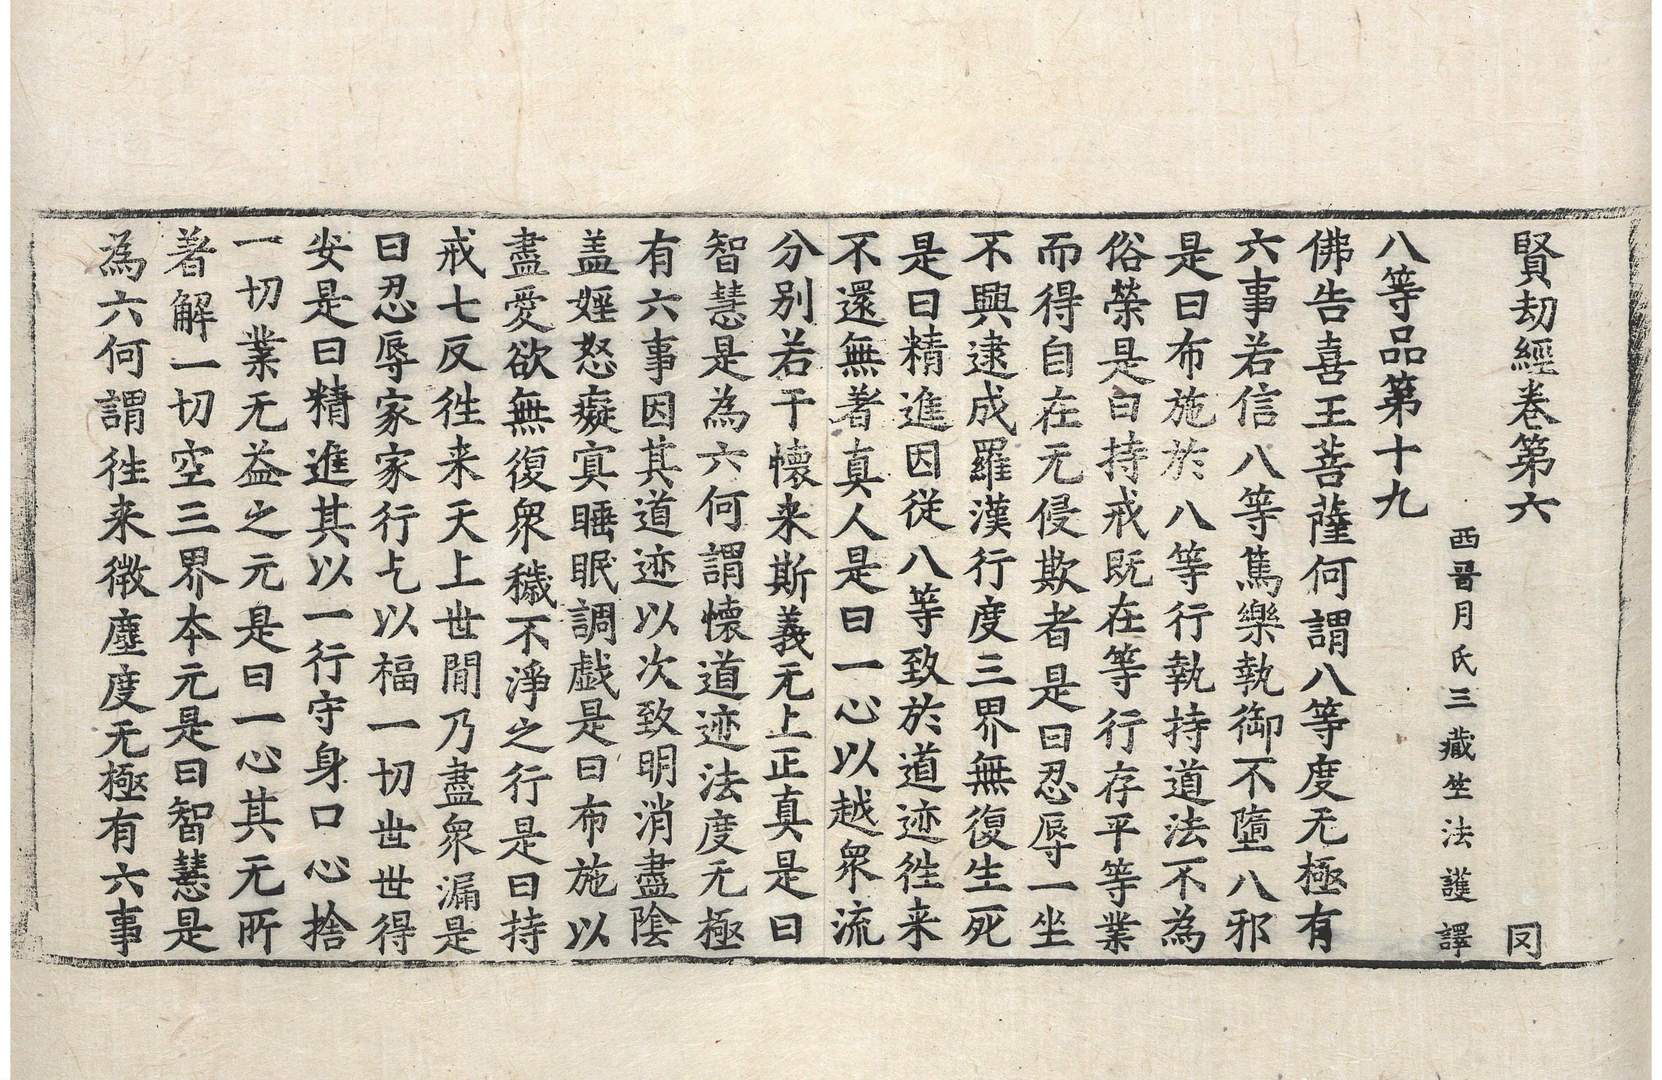 賢劫經卷第六
囚
西晋月氏三藏竺法護譯
八等品第十九
佛告喜王菩薩何謂八等度无極有
六事若信八等篤樂執御不墮八邪
是曰布施於八等行執持道法不為
俗榮是曰持戒既在等行存平等業
而得自在无侵欺者是曰忍辱一坐
不興逮成羅漢行度三界無復生死
是曰精進因從八等致於道迹徃来
不還無著真人是曰一心以越衆流
分別若干懷来斯義无上正真是曰
智慧是為六何謂懷道迹法度无極
有六事因其道迹以次致明消盡陰
盖婬怒癡㝠睡眠調戲是曰布施以
盡愛欲無復衆穢不淨之行是曰持
戒七反徃来天上世間乃盡衆漏是
曰忍辱家家行乞以福一切世世得
安是曰精進其以一行守身口心捨
一切業无益之元是曰一心其无所
著解一切空三界本元是曰智慧是
為六何謂徃来微塵度无極有六事